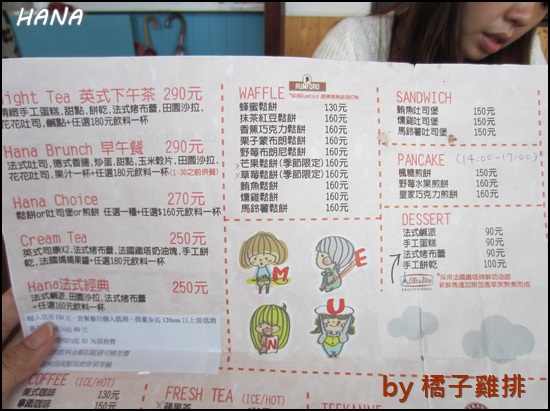 HANA
night Tea 英式下午茶 290元
精緻手工蛋糕,甜點,餅乾,法式烤布蕾,田園沙拉,
花花吐司,鹹點+任選180元飲料一杯
Hana Brunch 早午餐 290元
法式吐司,德式香腸,炒蛋,甜點,玉米穀片,田園沙拉,
花花吐司,果汁一杯+任選180元飲料一杯(1:30之前供餐)
Hana Choice 270元
鬆餅or吐司堡or煎餅 任選一種+任選$160元飲料一杯
Cream Tea 250元
英式司康X2,法式烤布蕾,法國鐵塔奶油塊,手工餅
乾,法國媽媽果醬+任選180元飲料一杯
Hana法式經典 250元
法式鹹派,田園沙拉,法式烤布蕾
+任選160元飲料一杯
COFFEE (ICE/HOT)
美式咖啡 130元
拿鐵咖啡 150元
RUMFORD
WAFFLE
蜂蜜鬆餅 130元
抹茶紅豆鬆餅 160元
香蕉巧克力鬆餅 160元
栗子蒙布朗鬆餅 160元
野莓布朗尼鬆餅 160元
芒果鬆餅(季節限定) 160元
草莓鬆餅(季節限定) 160元
鮪魚鬆餅 160元
燻雞鬆餅 160元
馬鈴薯鬆餅 160元
M
E
N
U
FRESH TEA (ICE/HOT)
SANDWICH
鮪魚吐司堡 150元
燻雞吐司堡 150元
馬鈴薯吐司堡 150元
PANCAKE (14:00-17:00)
楓糖煎餅 150元
野莓水果煎餅 160元
皇家巧克力煎餅 160元
DESSERT
法式鹹派 90元
手工蛋糕 90元
法式烤布蕾 90元
手工餅乾 100元
by 橘子雞排